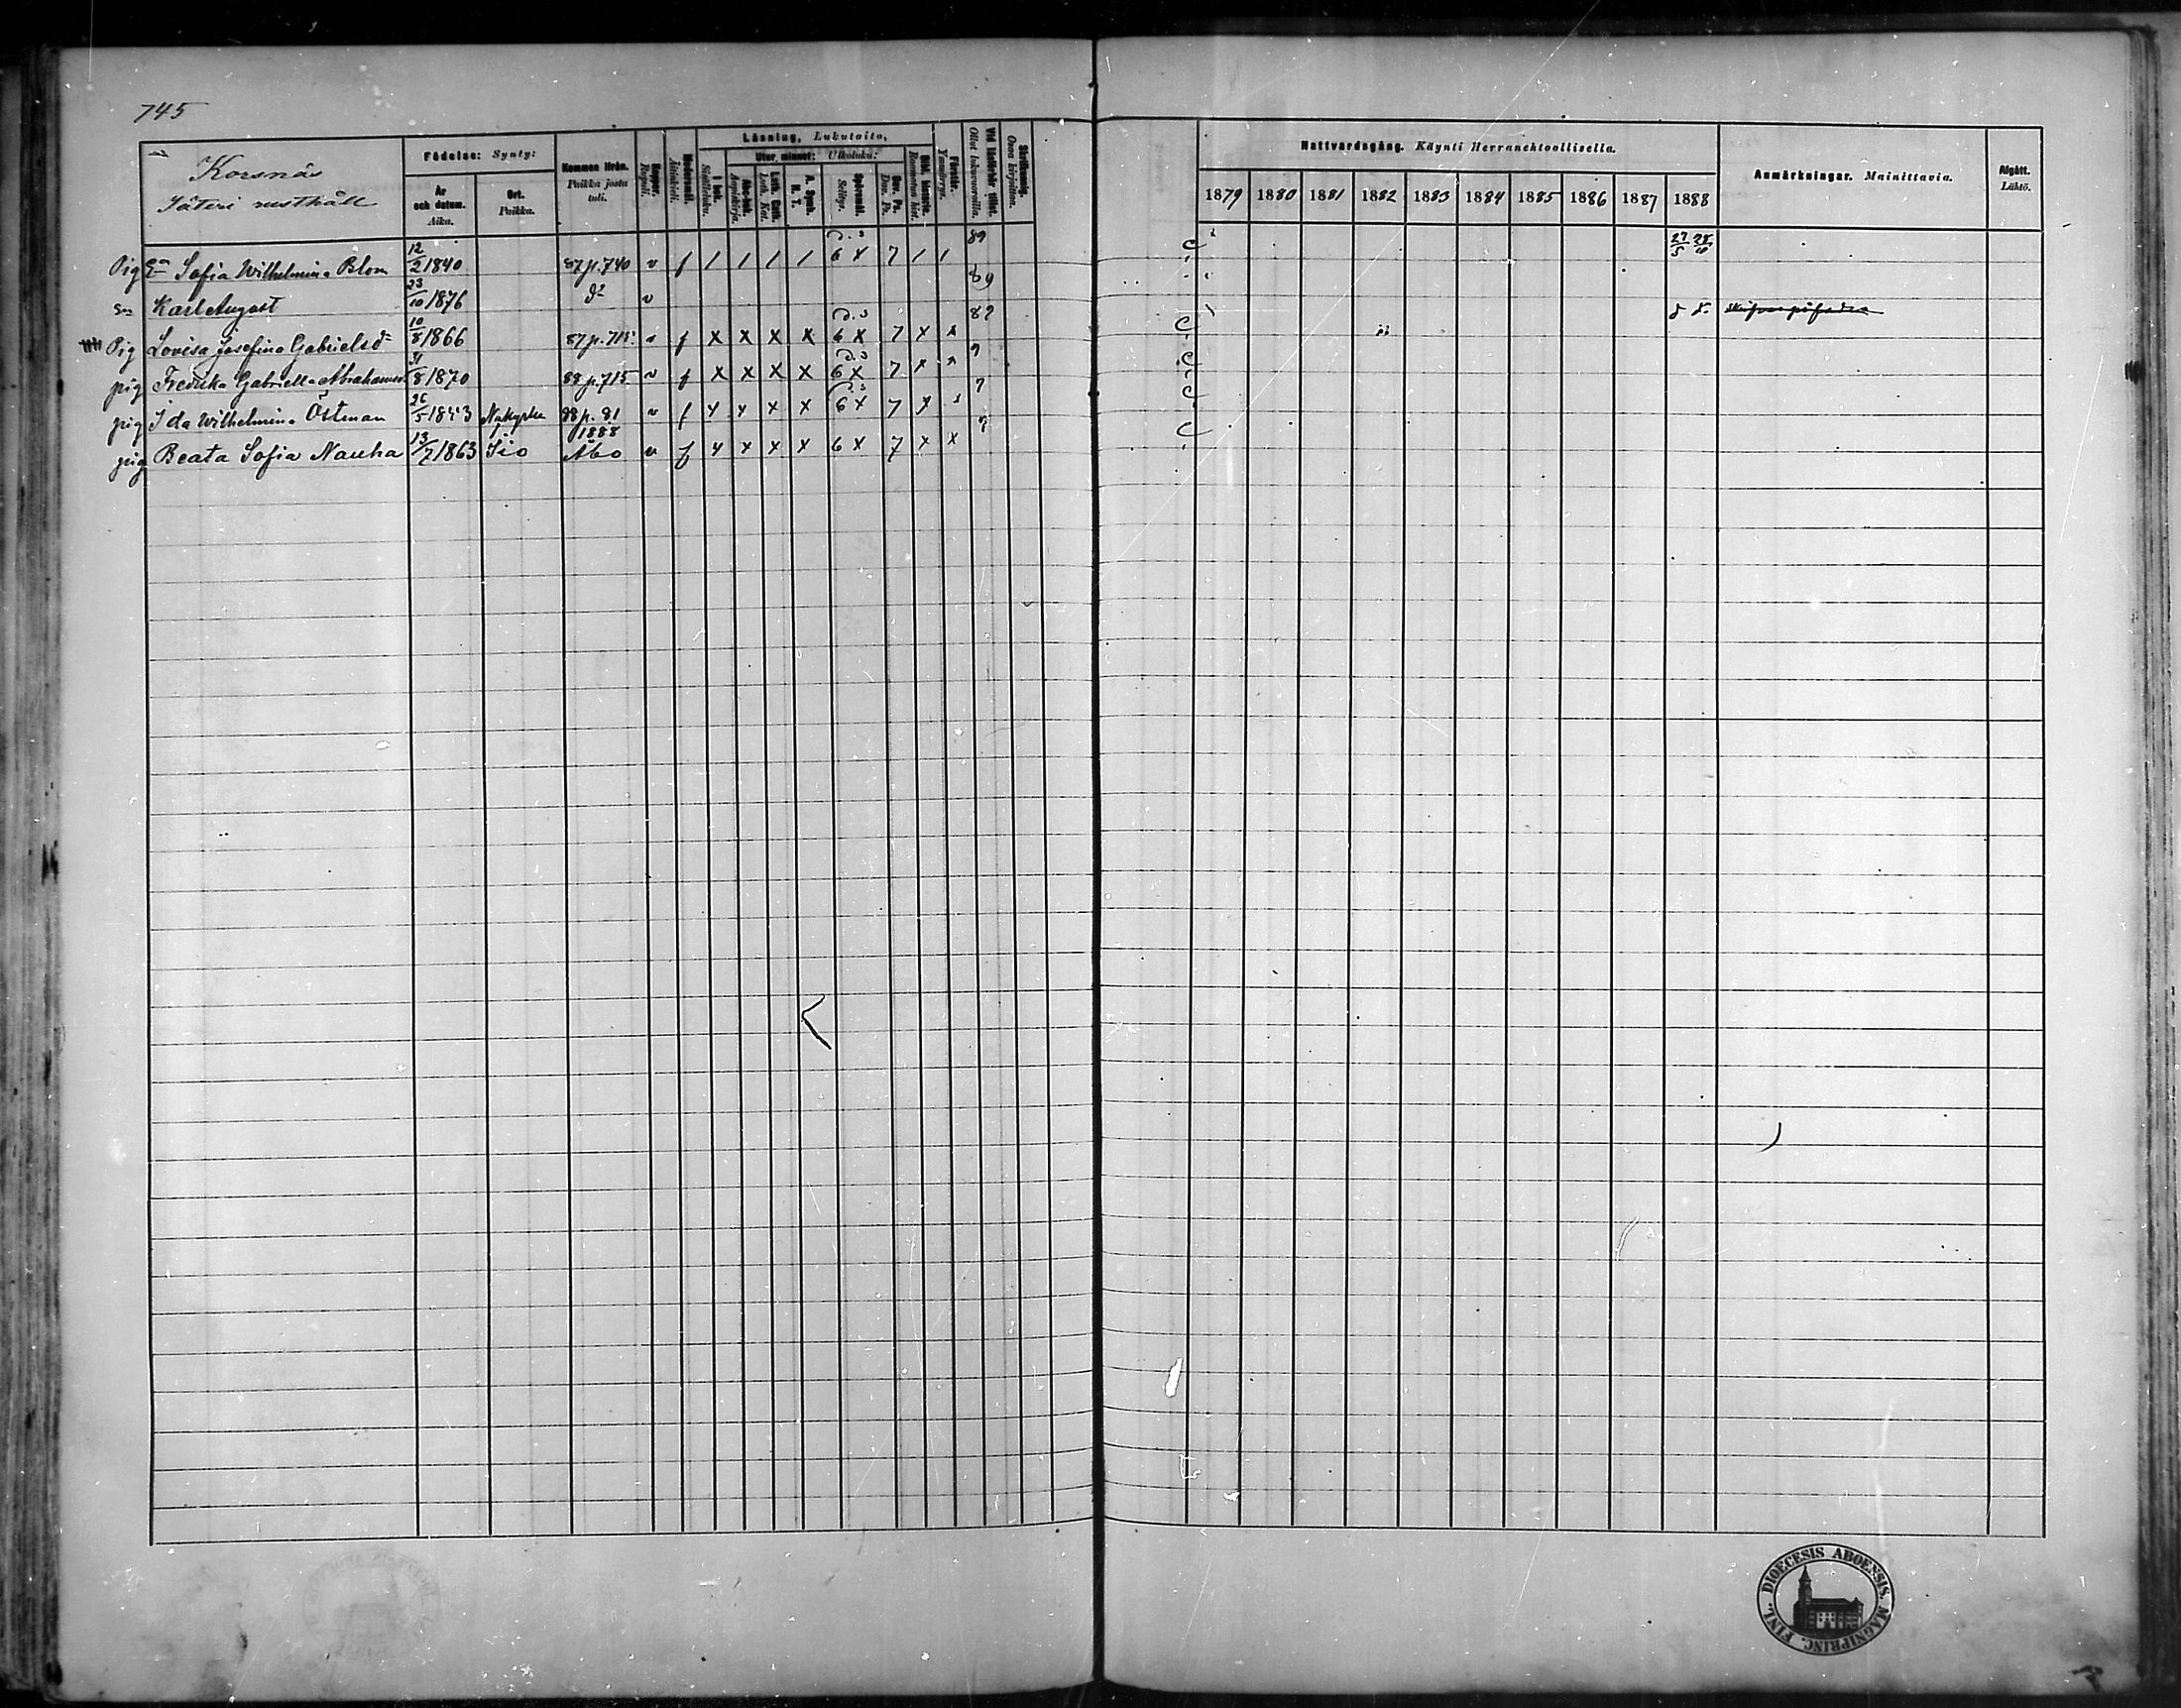 745
Korsnäs
Säteri rusthåll
Födelse: Synty:
År och datum. Aika.
Ort. Paikka.
Kommen ifrån. Paikka josta tuli.
Koppor. Rupuli.
Modersmål. Äitinkieli.
Läsning, Lukutaito,
I bok. Sisälluku.
Utur minnet: Ulkoluku:
Abc-bok. Aapiskirja.
Luth. Cath. Lut. Kat.
A. Symb. H. T.
Spörsmål. Selitys.
Dav. Ps. Dav. Ps.
Bibl. historia. Raamatun hist.
Förstår. Ymmärrys.
Vid läsförhör tillst. Ollut lukuvuoroilla.
Skrifkunnig. Osaa kirjoittaa.
Nattvardsgång. Käynti Herranehtoollisella.
1879 1880 1881 1882 1883 1884 1885 1886 1887 1888
Anmärkningar. Mainittavia.
Afgått. Lähtö.
Pig Sofia Wilhelmina Blom 12/2 1840 87 p. 740 v f / / / / 6 x 7 / / 89 27/5
Karl August 23/10 1876 d:o v 89
Pig Lovisa Josefina Gabrielsd:r 10/8 1866 87 p. 715 v f x x x x 6 x 7 x x 89
pig Fredrika Gabriella Abrahamsd 31/8 1870 88 p. 715 v f x x x x 6 x 7 x x 9
pig Ida Wilhelmina Östman 26/5 1853 Nykyrko 88 p. 81 v f x x x x 6 x 7 x x 9
pig Beata Sofia Nauha 13/7 1863 1888 Åbo v f x x x x 6 x 7 x x 9
DIOECESIS ABOENSIS MAGNIPRINC. FINL.